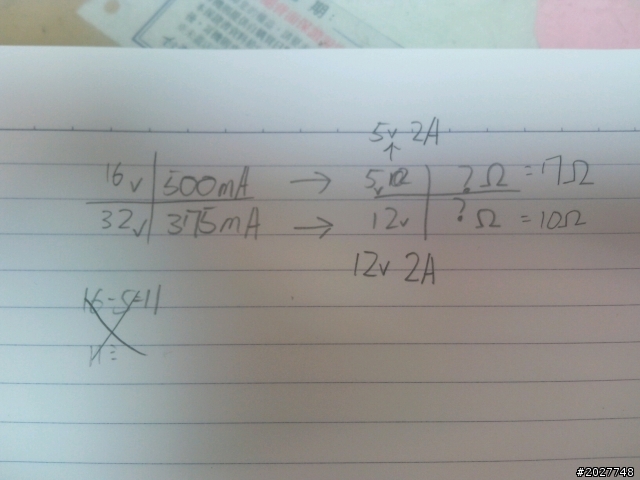 5v 2A
↑
16v 500mA → 5v ?Ω = 17Ω
32v 375mA → 12v ?Ω = 10Ω
12v 2A
16-5=11
#2027748